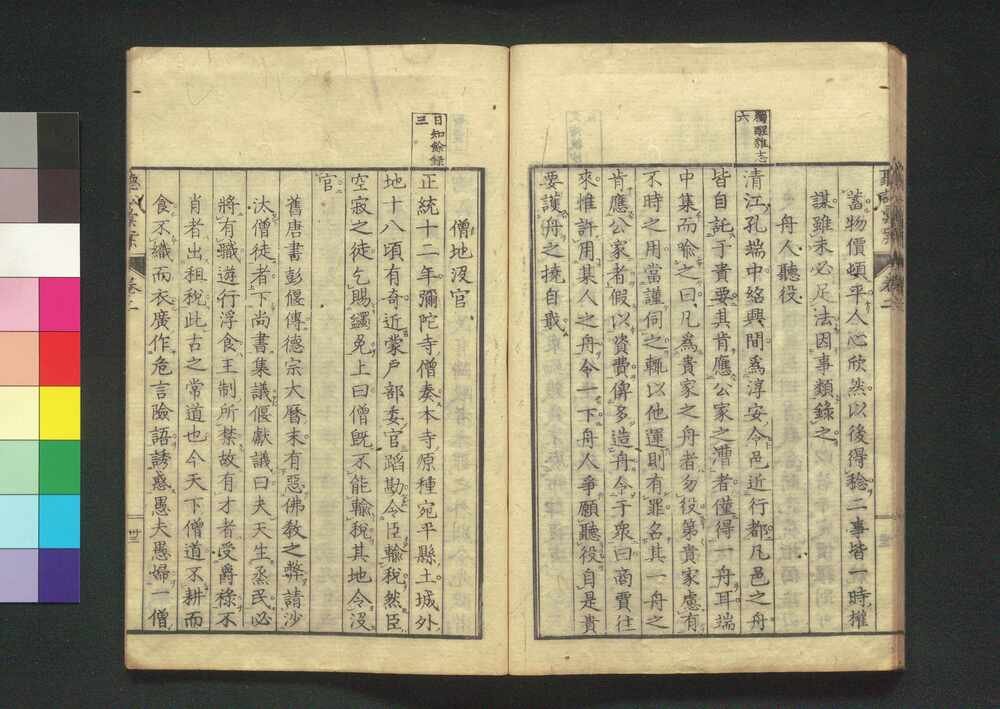 獨醒雜志
六
蓄物價頓平人心欣然以後得稔二事皆一時權
謀雖未必足法因事類錄之
舟人聽役
清江孔端中紹興間爲淳安令邑近行都凡邑之舟
皆自託于貴要其肯應公家之漕者僅得一舟耳端
中集而喻之曰凡爲貴家之舟者勿役第貴家慮有
不時之用當謹伺之輒以他運則有罪名其一舟之
肯應公家者假以資費俾多造舟令于衆曰商賈往
來惟許用某人之舟令一下舟人爭願聽役自是貴
要護舟之撓自戢
日知餘錄
三
僧地沒官
正統十二年彌陀寺僧奏本寺原種宛平縣土城外
地十八頃有奇近蒙戶部委官踏勘令臣輸稅然臣
空寂之徒乞賜蠲免上曰僧既不能輸稅其地令沒
官
舊唐書彭偃傳德宗大曆末有惡佛敎之弊請沙
汰僧徒者下尚書集議偃獻議曰夫天生烝民必
將有職遊行浮食王制所禁故有才者受爵祿不
肖者出租稅此古之常道也今天下僧道不耕而
食不織而衣廣作危言險語誘惑愚夫愚婦一僧
卷二
卅三